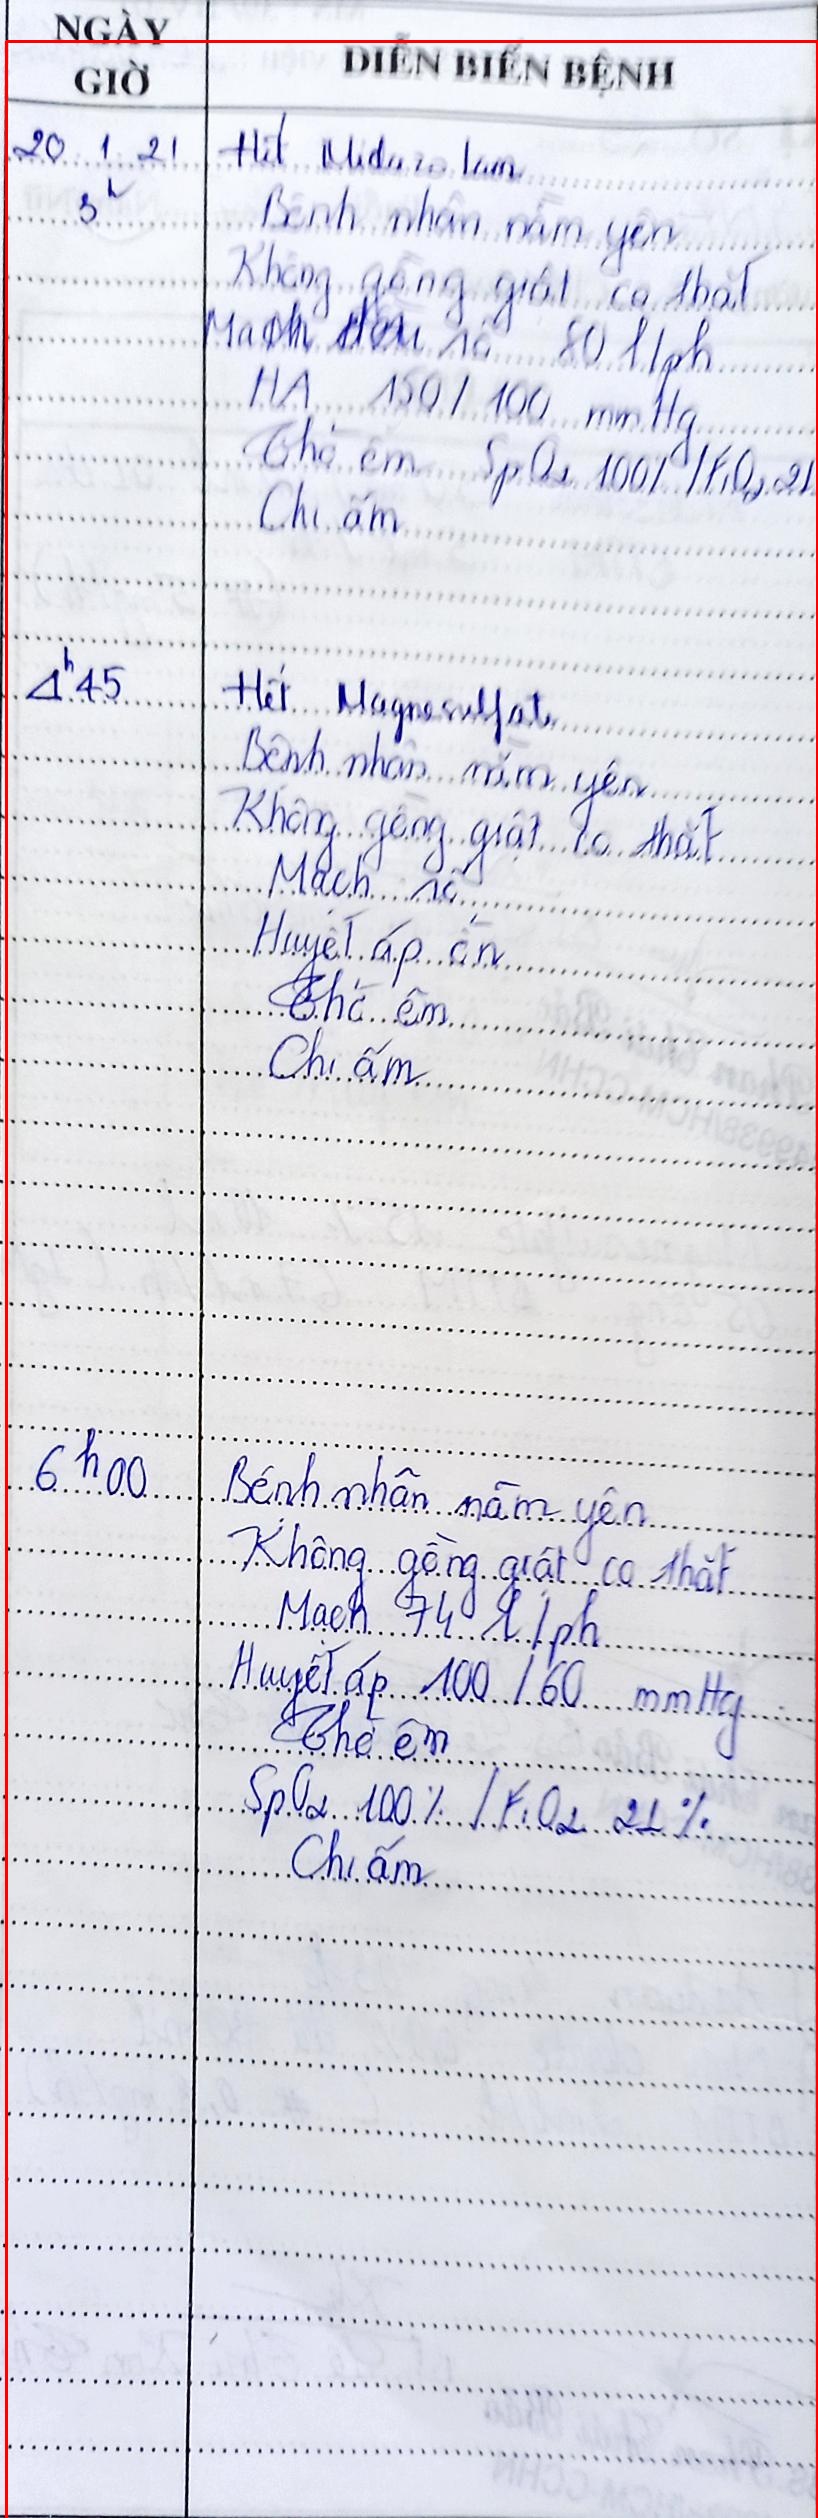 NGÀY GIỜ
DIỄN BIẾN BỆNH
20 1 21 Hết Midazolam
3h Bệnh nhân nằm yên
Không gồng giật co thắt
Mạch rõ 80 l/ph
HA 150/100 mmHg
Thở êm SpO2 100% /FiO2 21
Chi ấm
4h45 Hết Magnesulfate
Bệnh nhân nằm yên
Không gồng giật co thắt
Mạch rõ
Huyết áp ổn
Thở êm
Chi ấm
6h00 Bệnh nhân nằm yên
Không gồng giật co thắt
Mạch 74 l/ph
Huyết áp 100/60 mmHg
Thở êm
SpO2 100% /FiO2 21%
Chi ấm